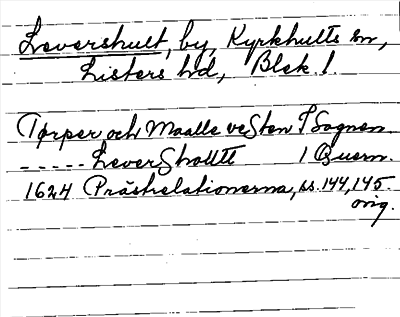 Levershult, by, Kyrkhults sn,
Listers hd, Blek. l.
Torper och Maalle veSten I Sognen
----- LeverShollte 1 Quern.
1624 Prästrelationerna, ss. 144, 145.
orig.